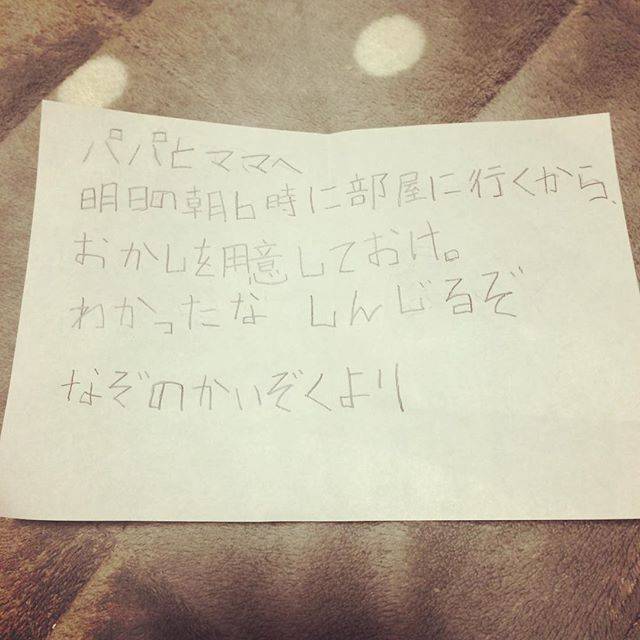 パパとママへ
明日の朝6時に部屋に行くから、
おかしを用意しておけ。
わかったな しんじるぞ
なぞのかいぞくより